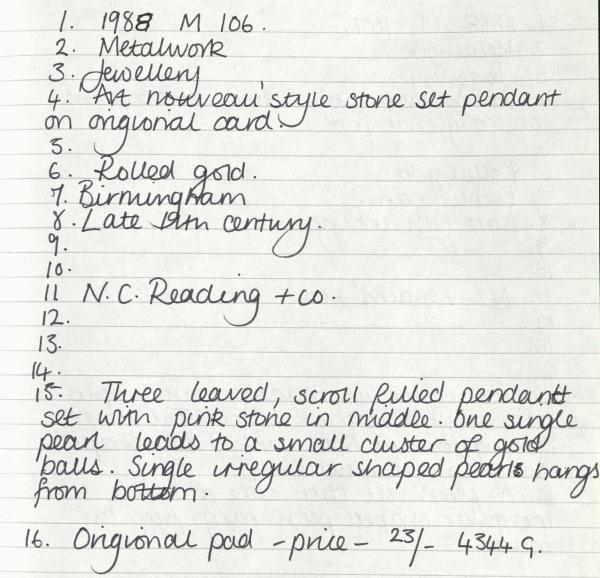 1. 1988 M 106.
2. Metalwork
3. Jewellery
4. 'Art nouveau' style stone set pendant
on origional card.
5.
6. Rolled gold.
7. Birmingham
8. Late 19th century.
9.
10.
11 N.C. Reading + co.
12.
13.
14.
15. Three leaved, scroll filled pendant
set with pink stone in middle. One single
pearl leads to a small cluster of gold
balls. Single irregular shaped pearls hangs
from bottom.
16. Origional pad - price - 23/- 4344 G.